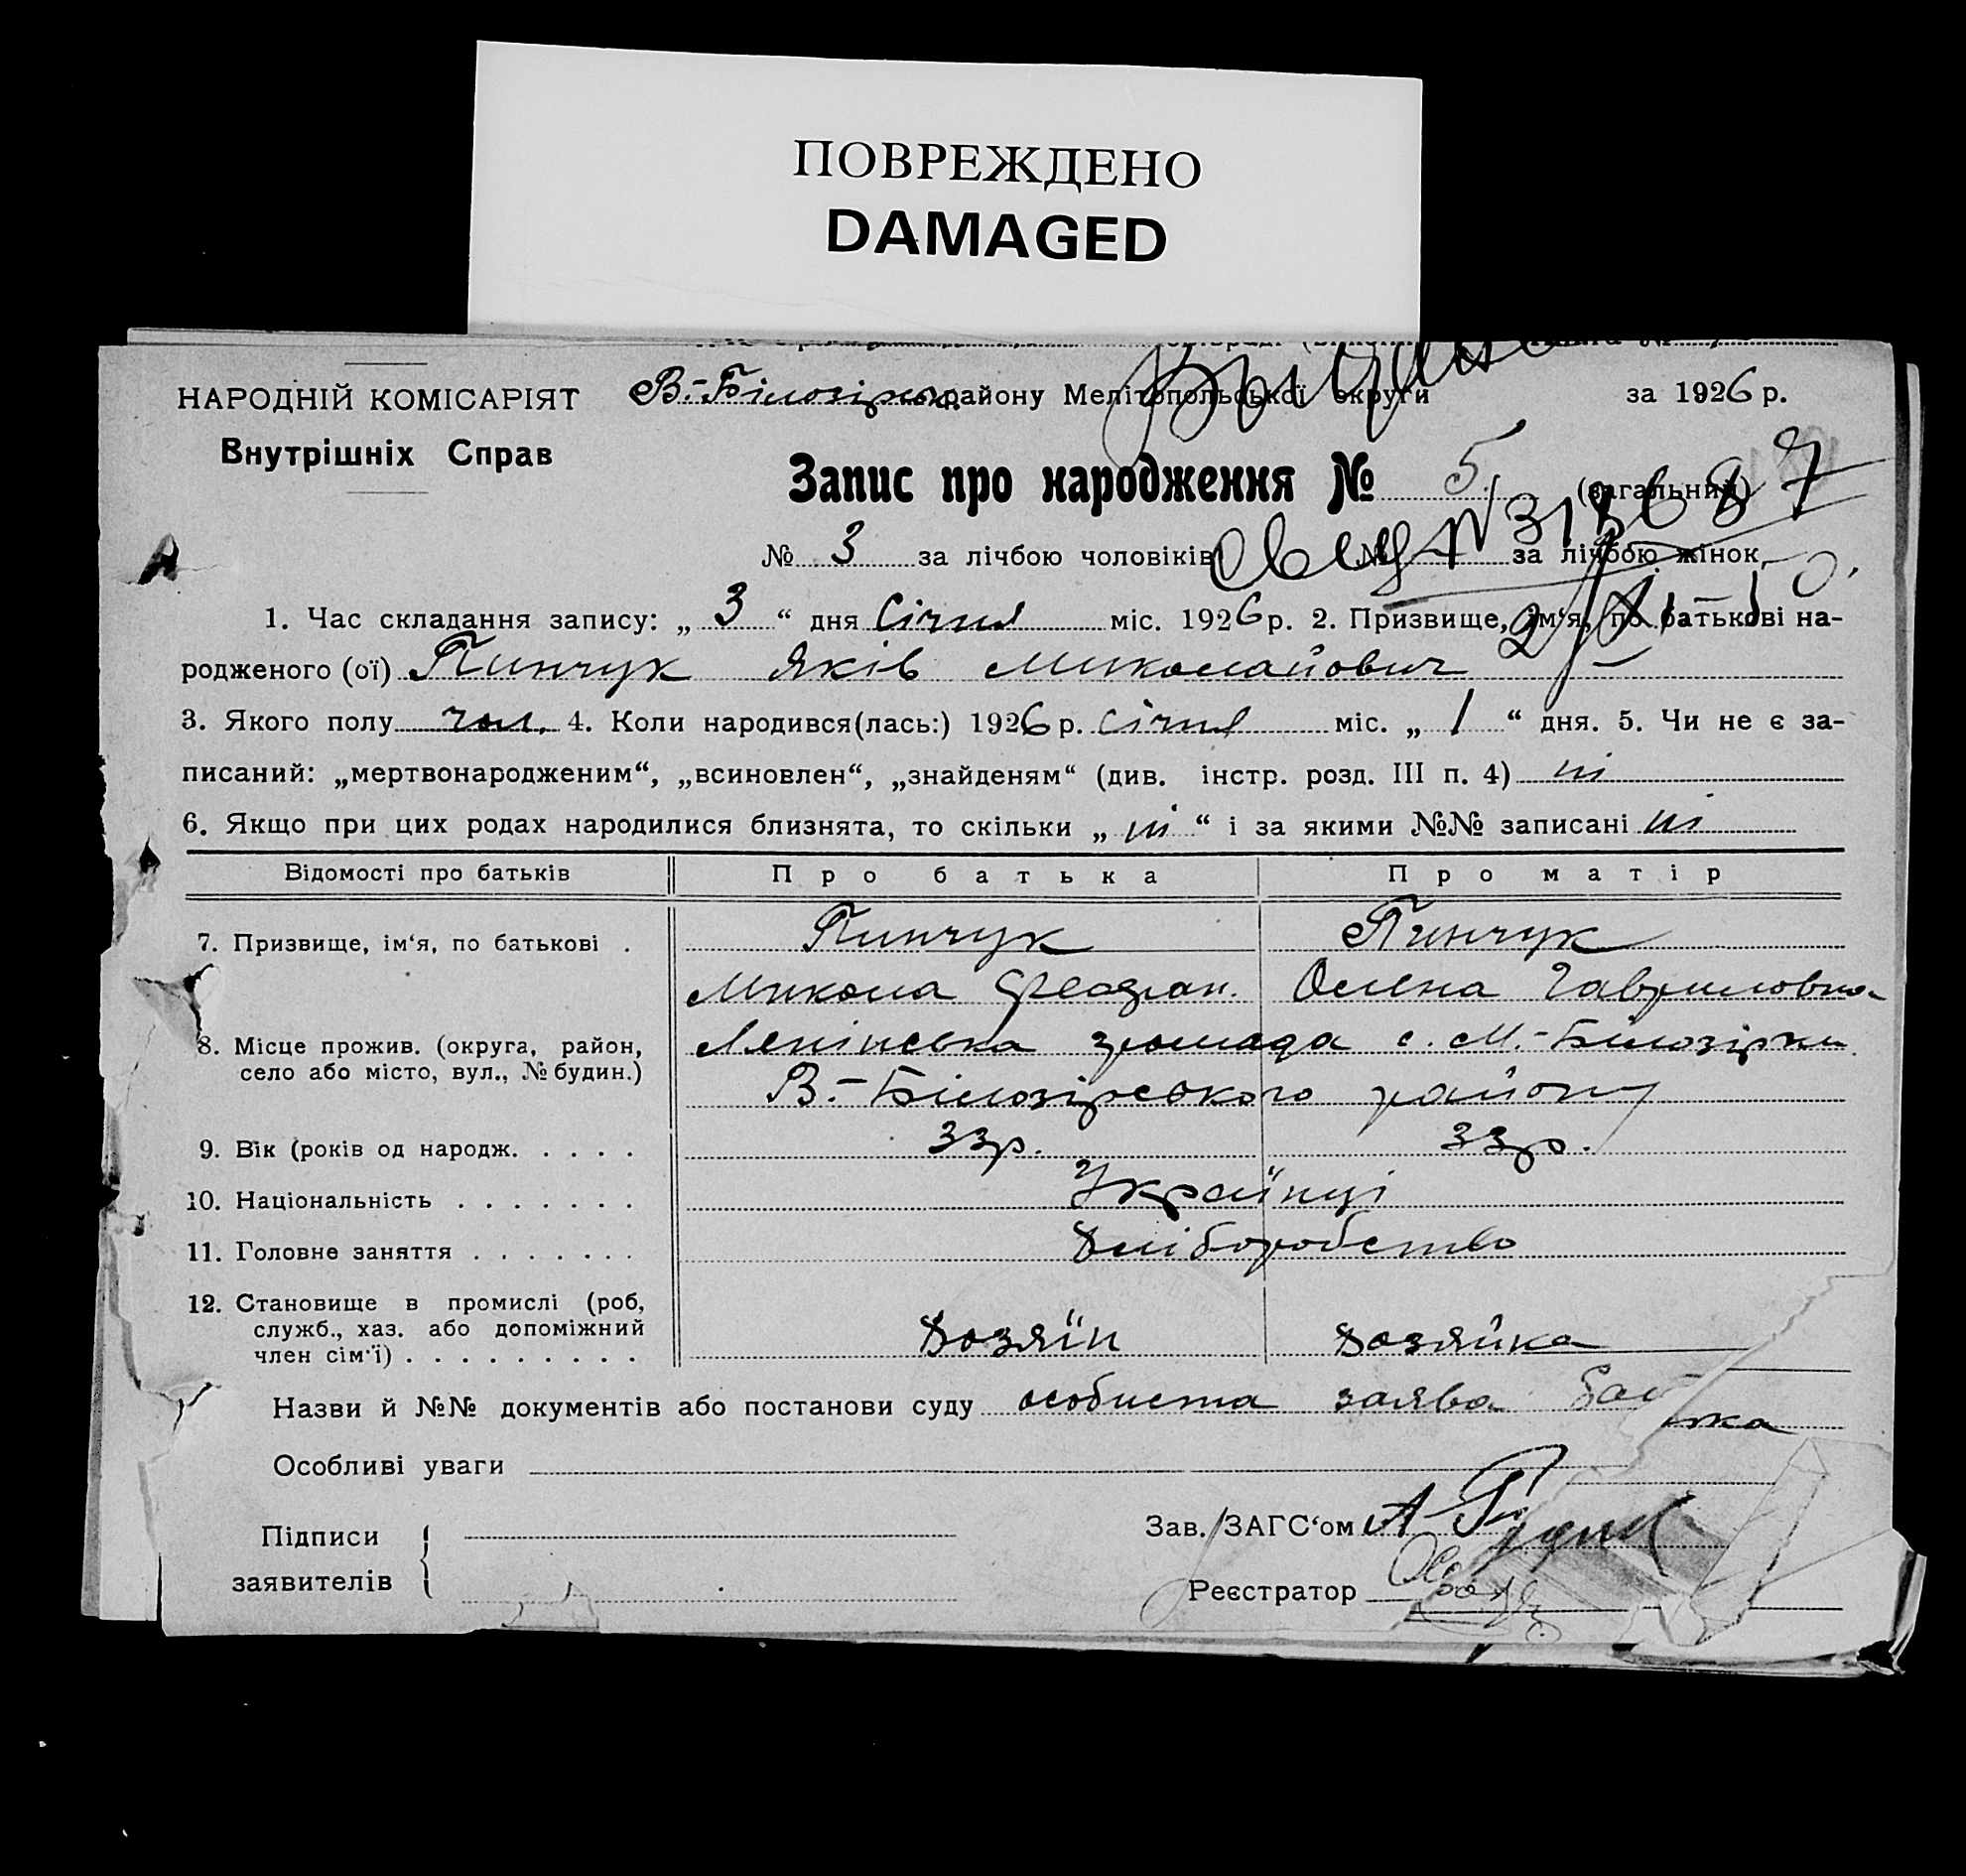 ПОВРЕЖДЕНО
DAMAGED
НАРОДНІЙ КОМІСАРІЯТ
Внутрішніх Справ
В.-Білозірськ. району Мелітопольської округи за 1926 р.
Запис про народження № 5 (загальний)
№ 3 за лічбою чоловіків № за лічбою жінок
1. Час складання запису: „ 3 “ дня Січня міс. 1926 р. 2. Призвище, ім‘я, по батькові на-
родженого (ої) Пинчук Яків Миколайович
3. Якого полу чол. 4. Коли народився(лась:) 1926 р. січня міс. „ 1 “ дня. 5. Чи не є за-
писаний: „мертвонародженим“, „всиновлен“, „знайденям“ (див. інстр. розд. III п. 4) ні
6. Якщо при цих родах народилися близнята, то скільки „ ні “ і за якими №№ записані ні
Відомості про батьків Про батька Про матір
7. Призвище, ім‘я, по батькові . Пинчук Пинчук
Микола Олена Гавриловна
8. Місце прожив. (округа, район, Ленінська громада с. М.-Білозірки
село або місто, вул., № будин.) В.-Білозірського району
9. Вік (років од народж. . . . . 33р. 33р.
10. Національність . . . . . . . Українці
11. Головне заняття . . . . . . . Хліборобство
12. Становище в промислі (роб,
служб., хаз. або допоміжний Хозяїн Хозяйка
член сім‘ї) . . . . . . . . .
Назви й №№ документів або постанови суду особиста заява батька
Особливі уваги
Підписи Зав. ЗАГС‘ом А
заявителів Реєстратор